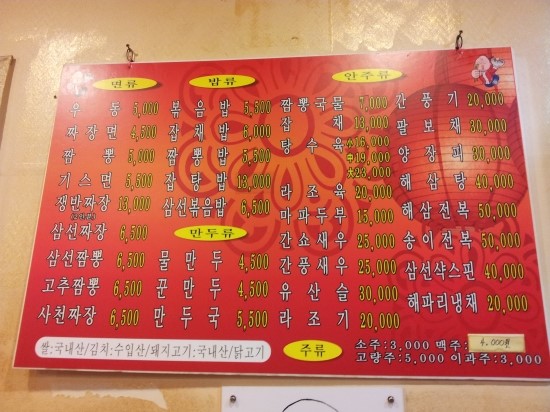 면류
우동 5,000
짜장면 4,500
짬뽕 5,000
기스면 5,500
쟁반짜장 13,000
삼선짜장 6,500
삼선짬뽕 6,500
고추짬뽕 6,500
사천짜장 6,500
밥류
볶음밥 5,500
잡채밥 6,000
짬뽕밥 5,500
잡탕밥 13,000
삼선볶음밥 6,500
만두류
물만두 4,500
꾼만두 4,500
만두국 5,500
안주류
짬뽕국물 7,000
잡채 13,000
탕수육 小 15,000
中 19,000
大 23,000
라조육 20,000
마파두부 15,000
간쇼새우 25,000
간풍새우 25,000
유산슬 30,000
라조기 20,000
간풍기 20,000
팔보채 30,000
양장피 30,000
해삼탕 40,000
해삼전복 50,000
송이전복 50,000
삼선샥스핀 40,000
해파리냉채 20,000
쌀:국내산/김치:수입산/돼지고기:국내산/닭고기
주류
소주:3,000 맥주: 4,000원
고량주:5,000 이과주:3,000